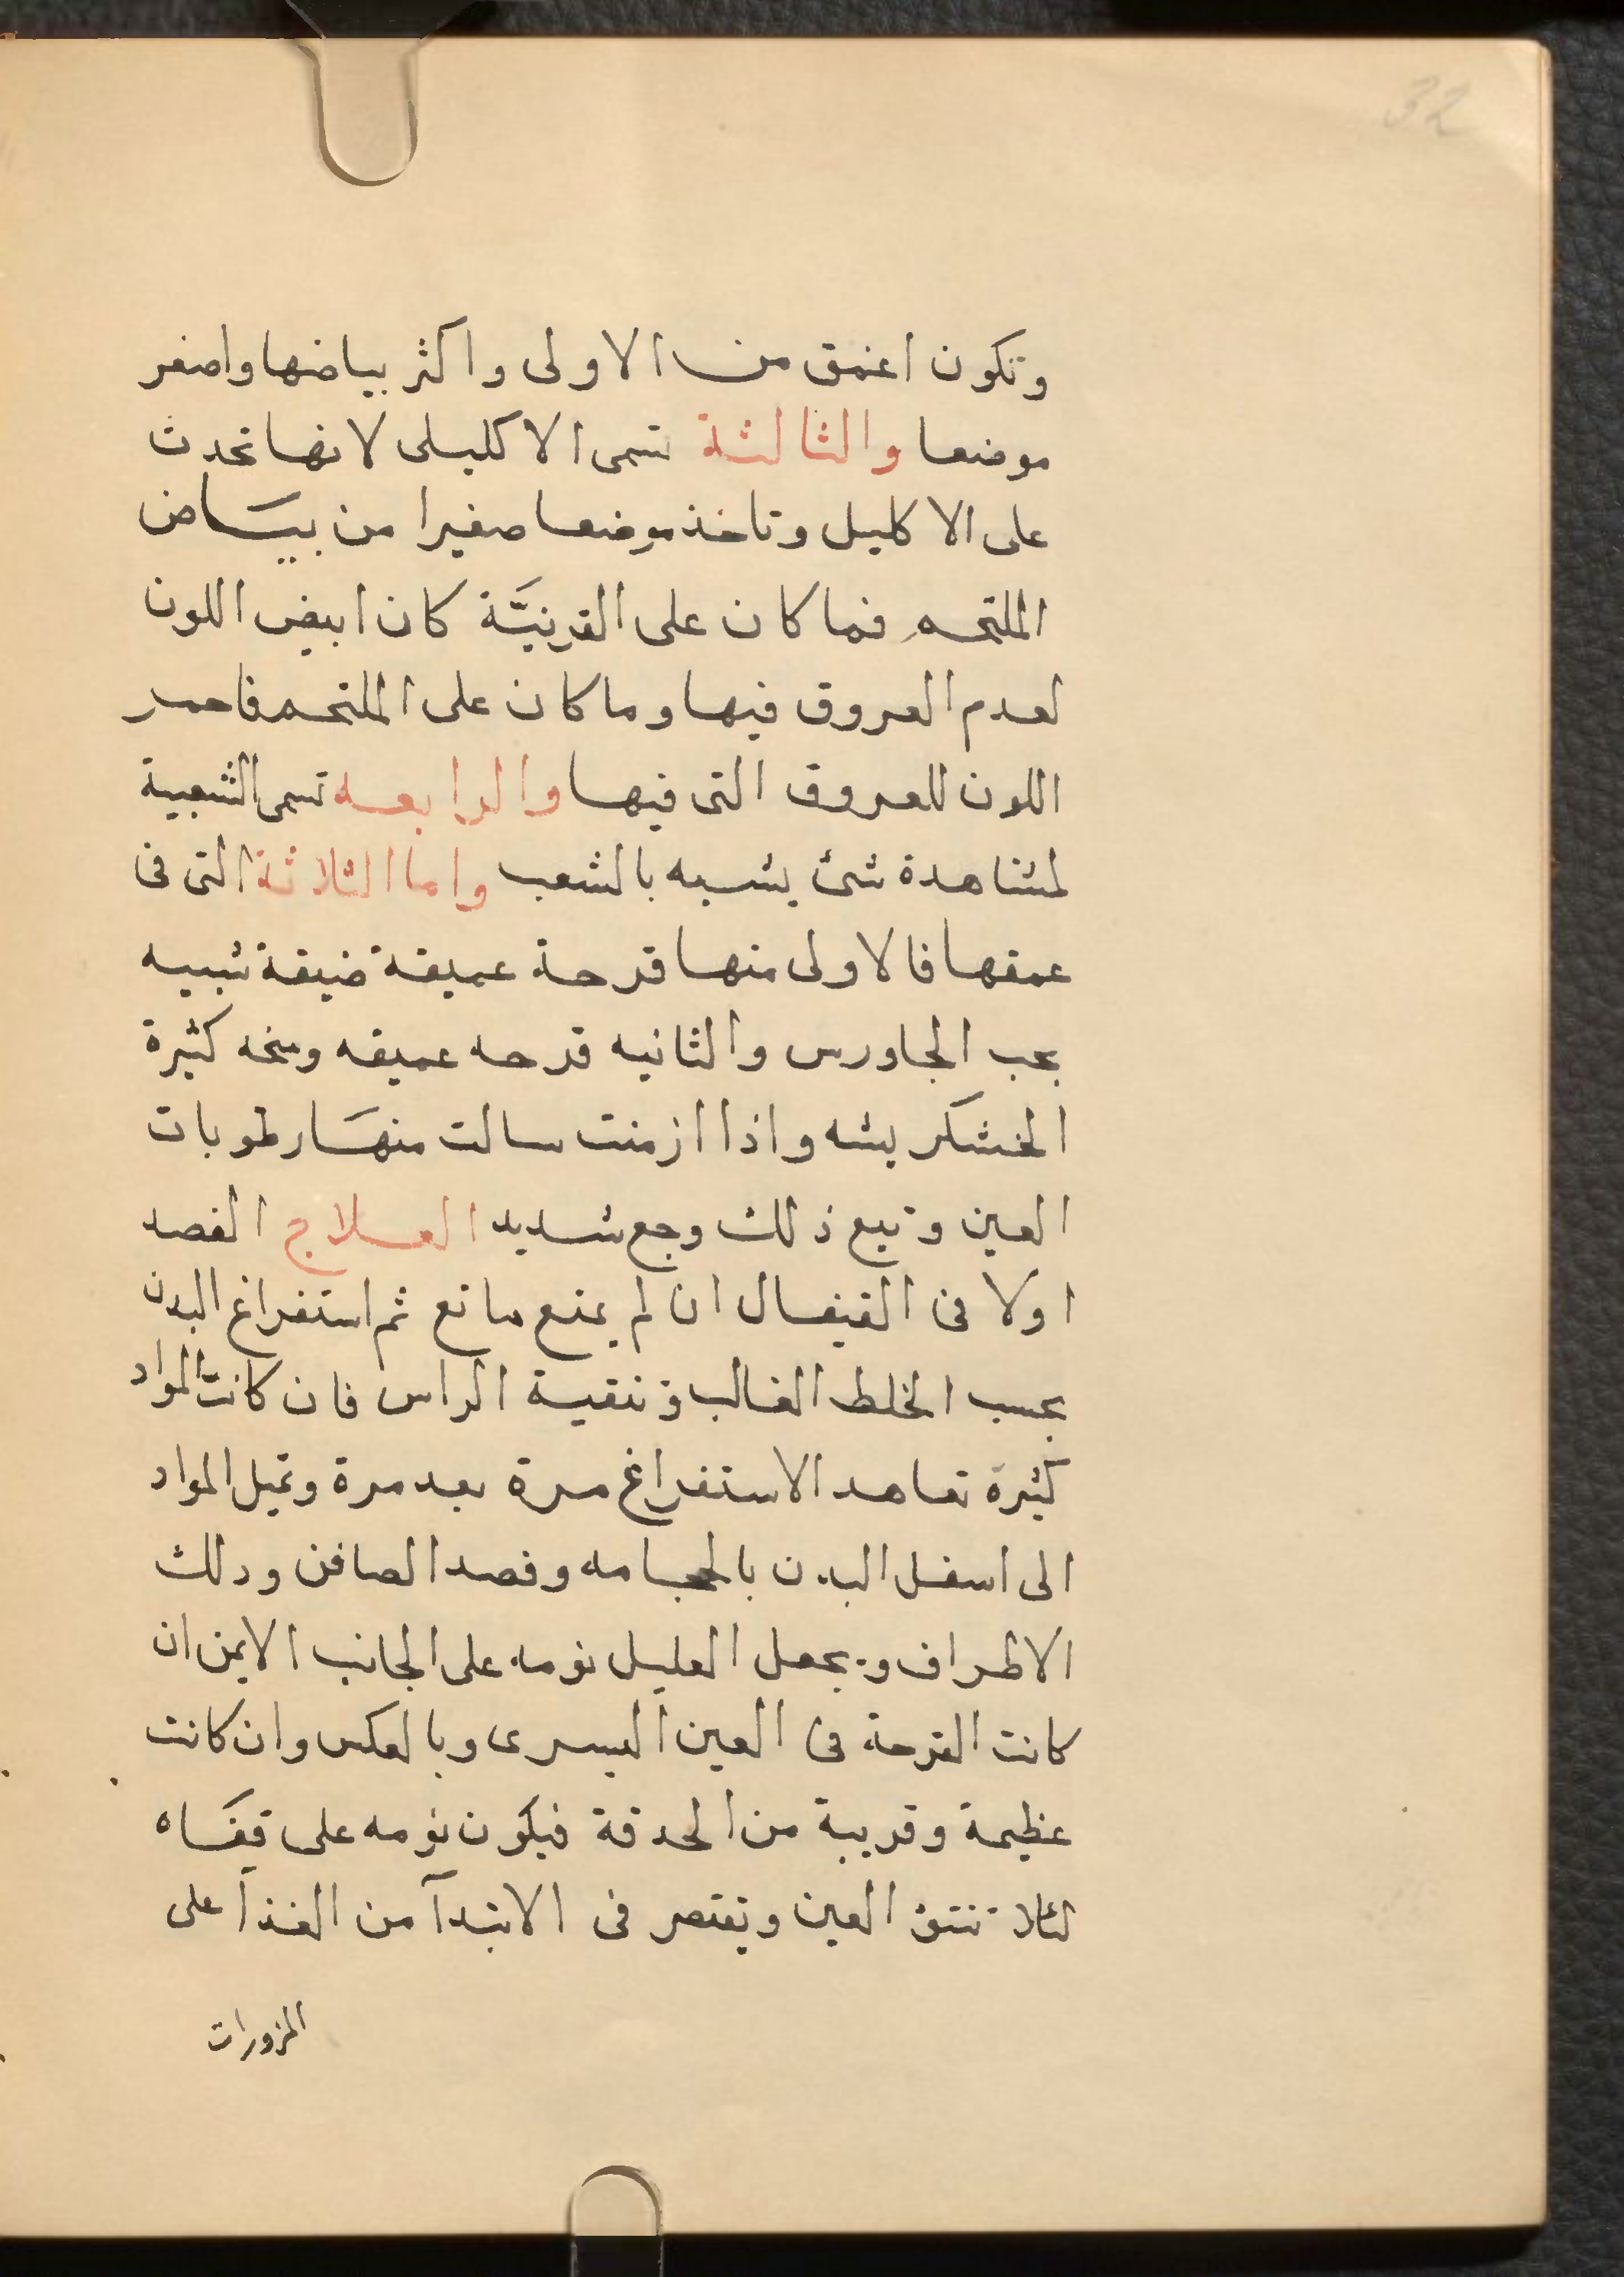 32
وتكون اعمق من الاولى واكثر بياضها واصغر
موضعا والثالثة تسمى الاكليلى لانها تحدث
على الاكليل وتاخذ موضعا صغيرا من بياض
الملتحم فما كان على القرنيَّة كان ابيض اللون
لعدم العروق فيها وما كان على الملتحم فاحمر
اللون للعروق التى فيها والرابعه تسمى الشعبية
لمشاهدة شئ يشبه بالشعب واما الثلاثة التى فى
عمقها فالاولى منها قرحة عميقة ضيقة شبيه
بحب الجاورس والثانيه قرحه عميقه وسخه كثيرة
الخشكريشه واذا ازمنت سالت منهَا رطوبات
العين وتبع ذلك وجع شديد العلاج الفصد
اولا فى القيفال ان لم يمنع مانع ثم استفراغ البدن
بحسب الخلط الغالب وتنقية الراس فان كانت المواد
كثيرة تعاهد الاستفراغ مرة بعد مرة وتميل المواد
الى اسفل البدن بالحجامه وفصد الصافن ودلك
الاطراف ويجعل العليل نومه على الجانب الايمن ان
كانت القرحة فى العين اليسرى وبالعكس وان كانت
عظيمة وقريبة من الحدقة فيكون نومه على قفَاه
لئلا تنتؤ العين ويقتصر فى الابتدآ من الغذآ على
المزورات